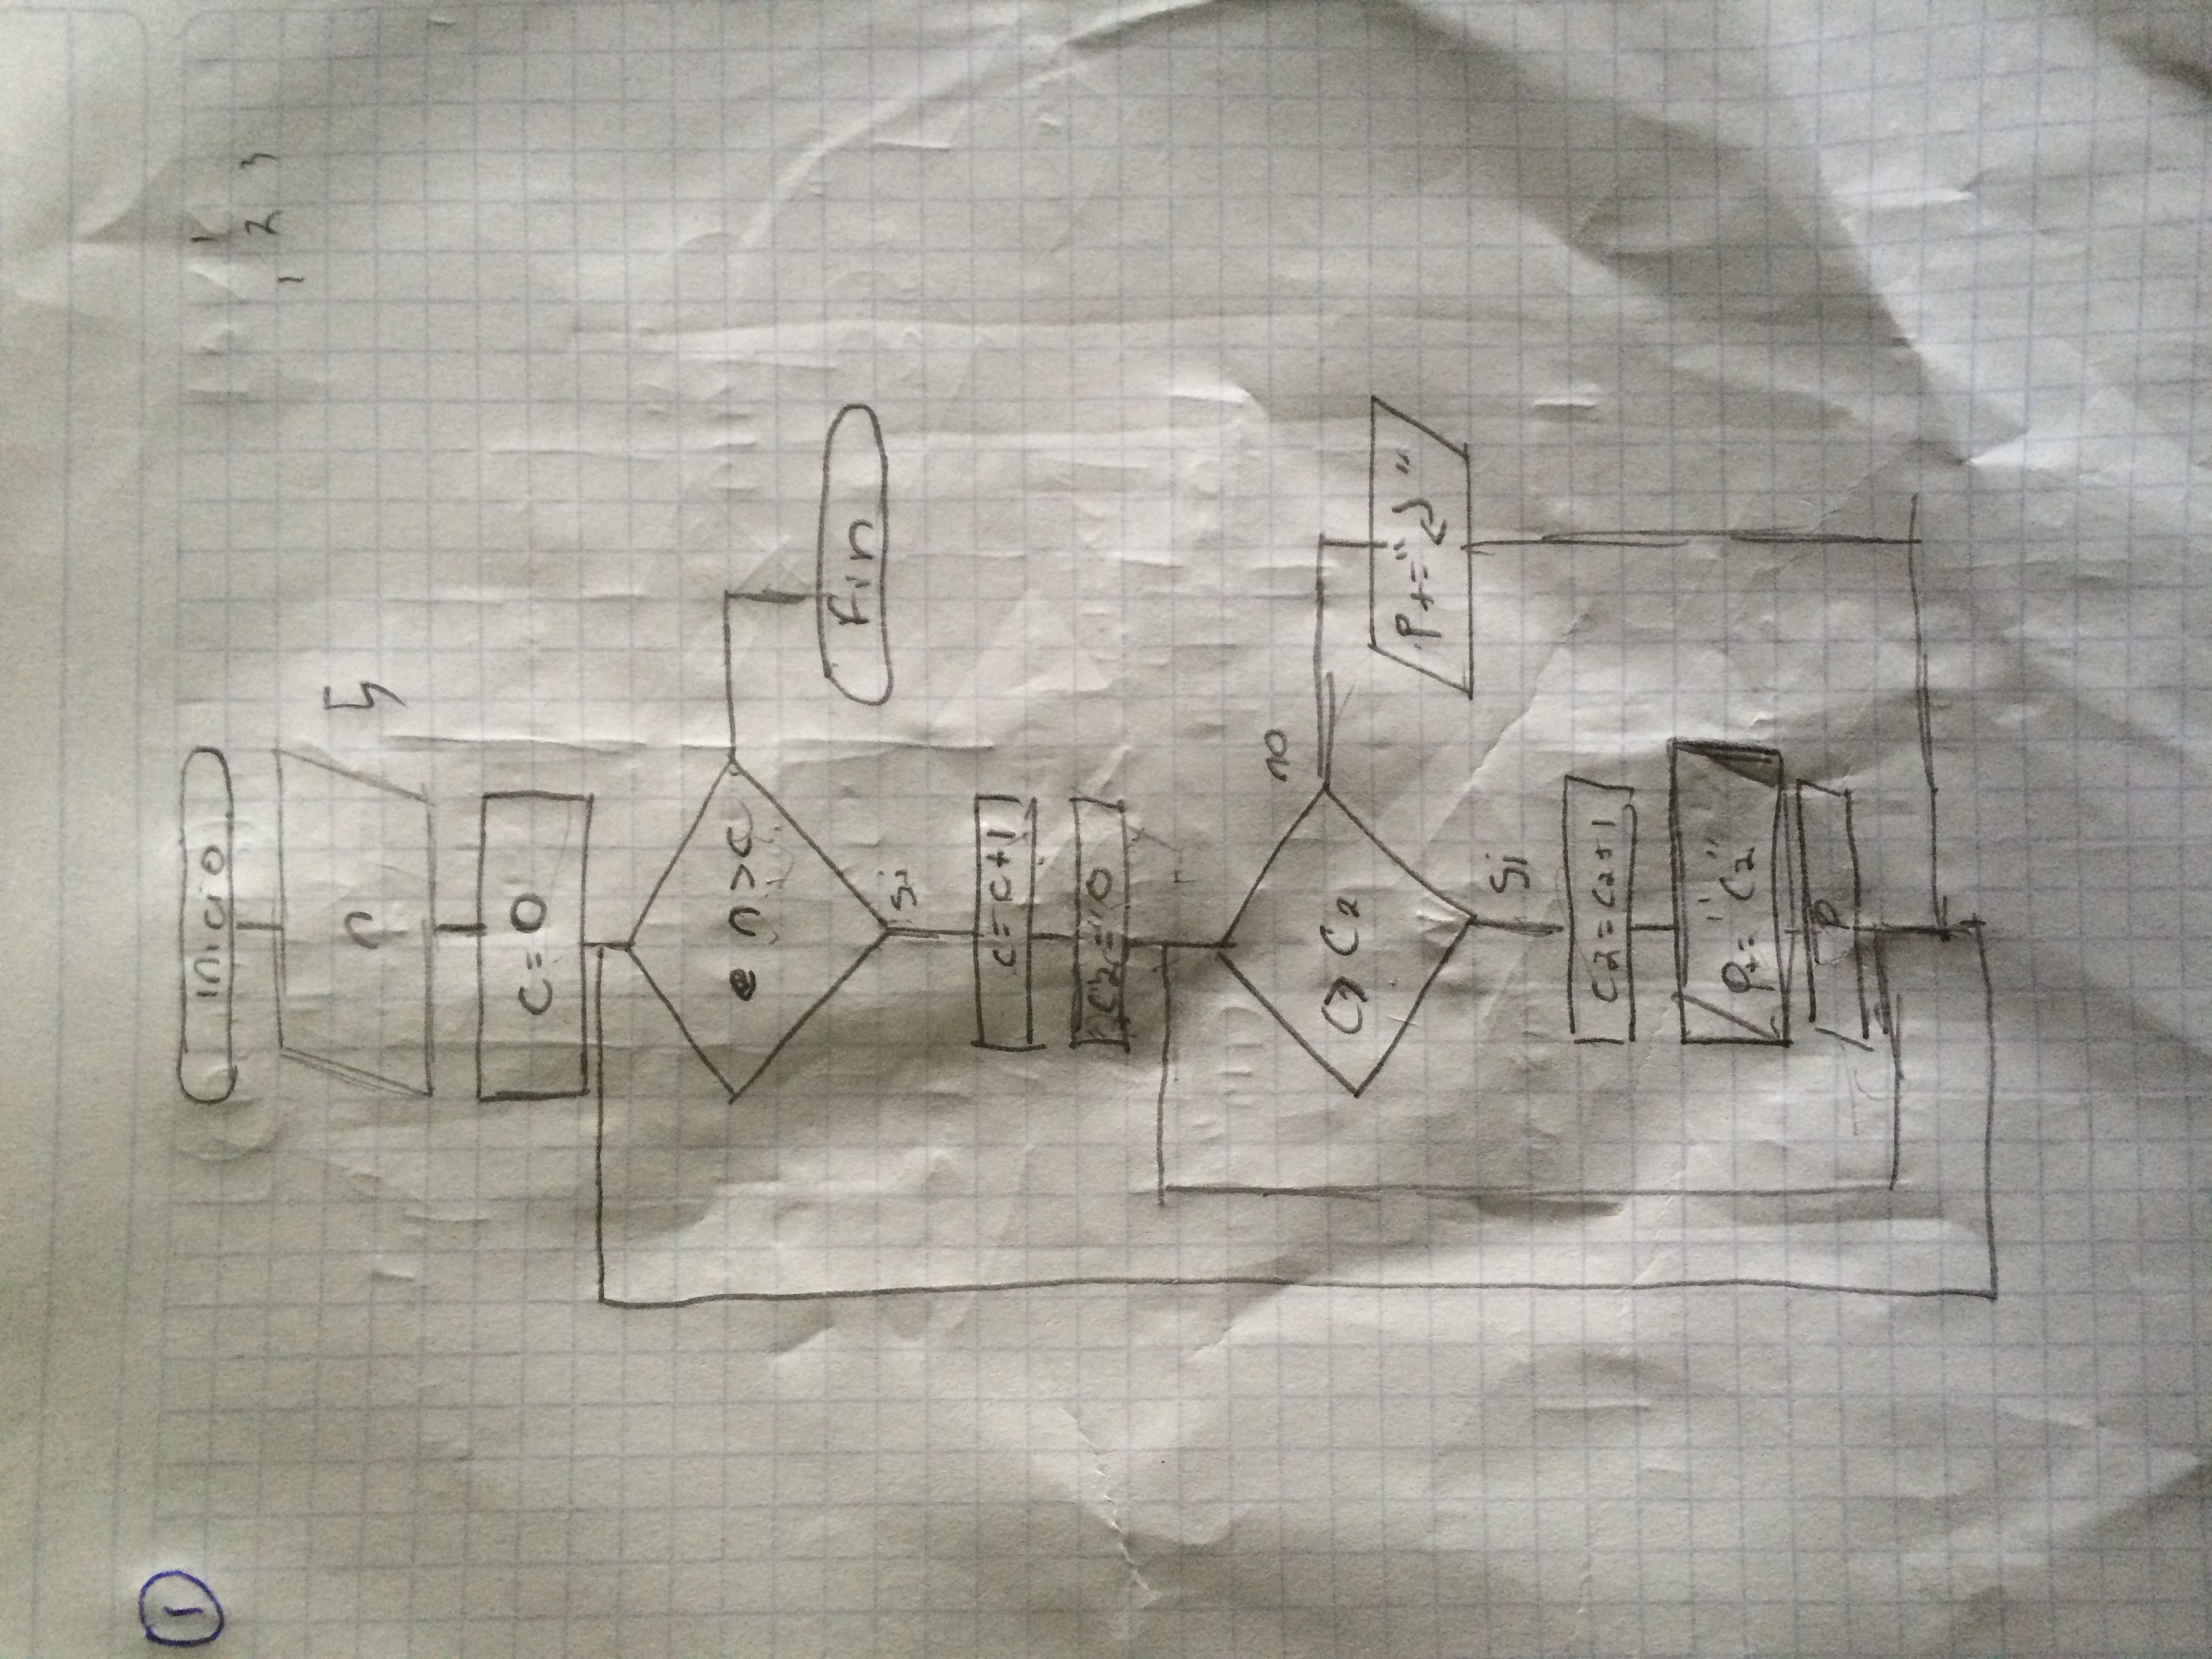 1
inicio
1
2 3
1
n
5
c=0
n>c
Fin
si
c=c+1
c2=0
no
C> C2
P+="↵"
Si
c2=c2+1
P+="c2"
P